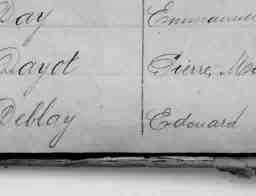 Day Emmanuel
Dayot Pierre, Ma
Deblay Edouard